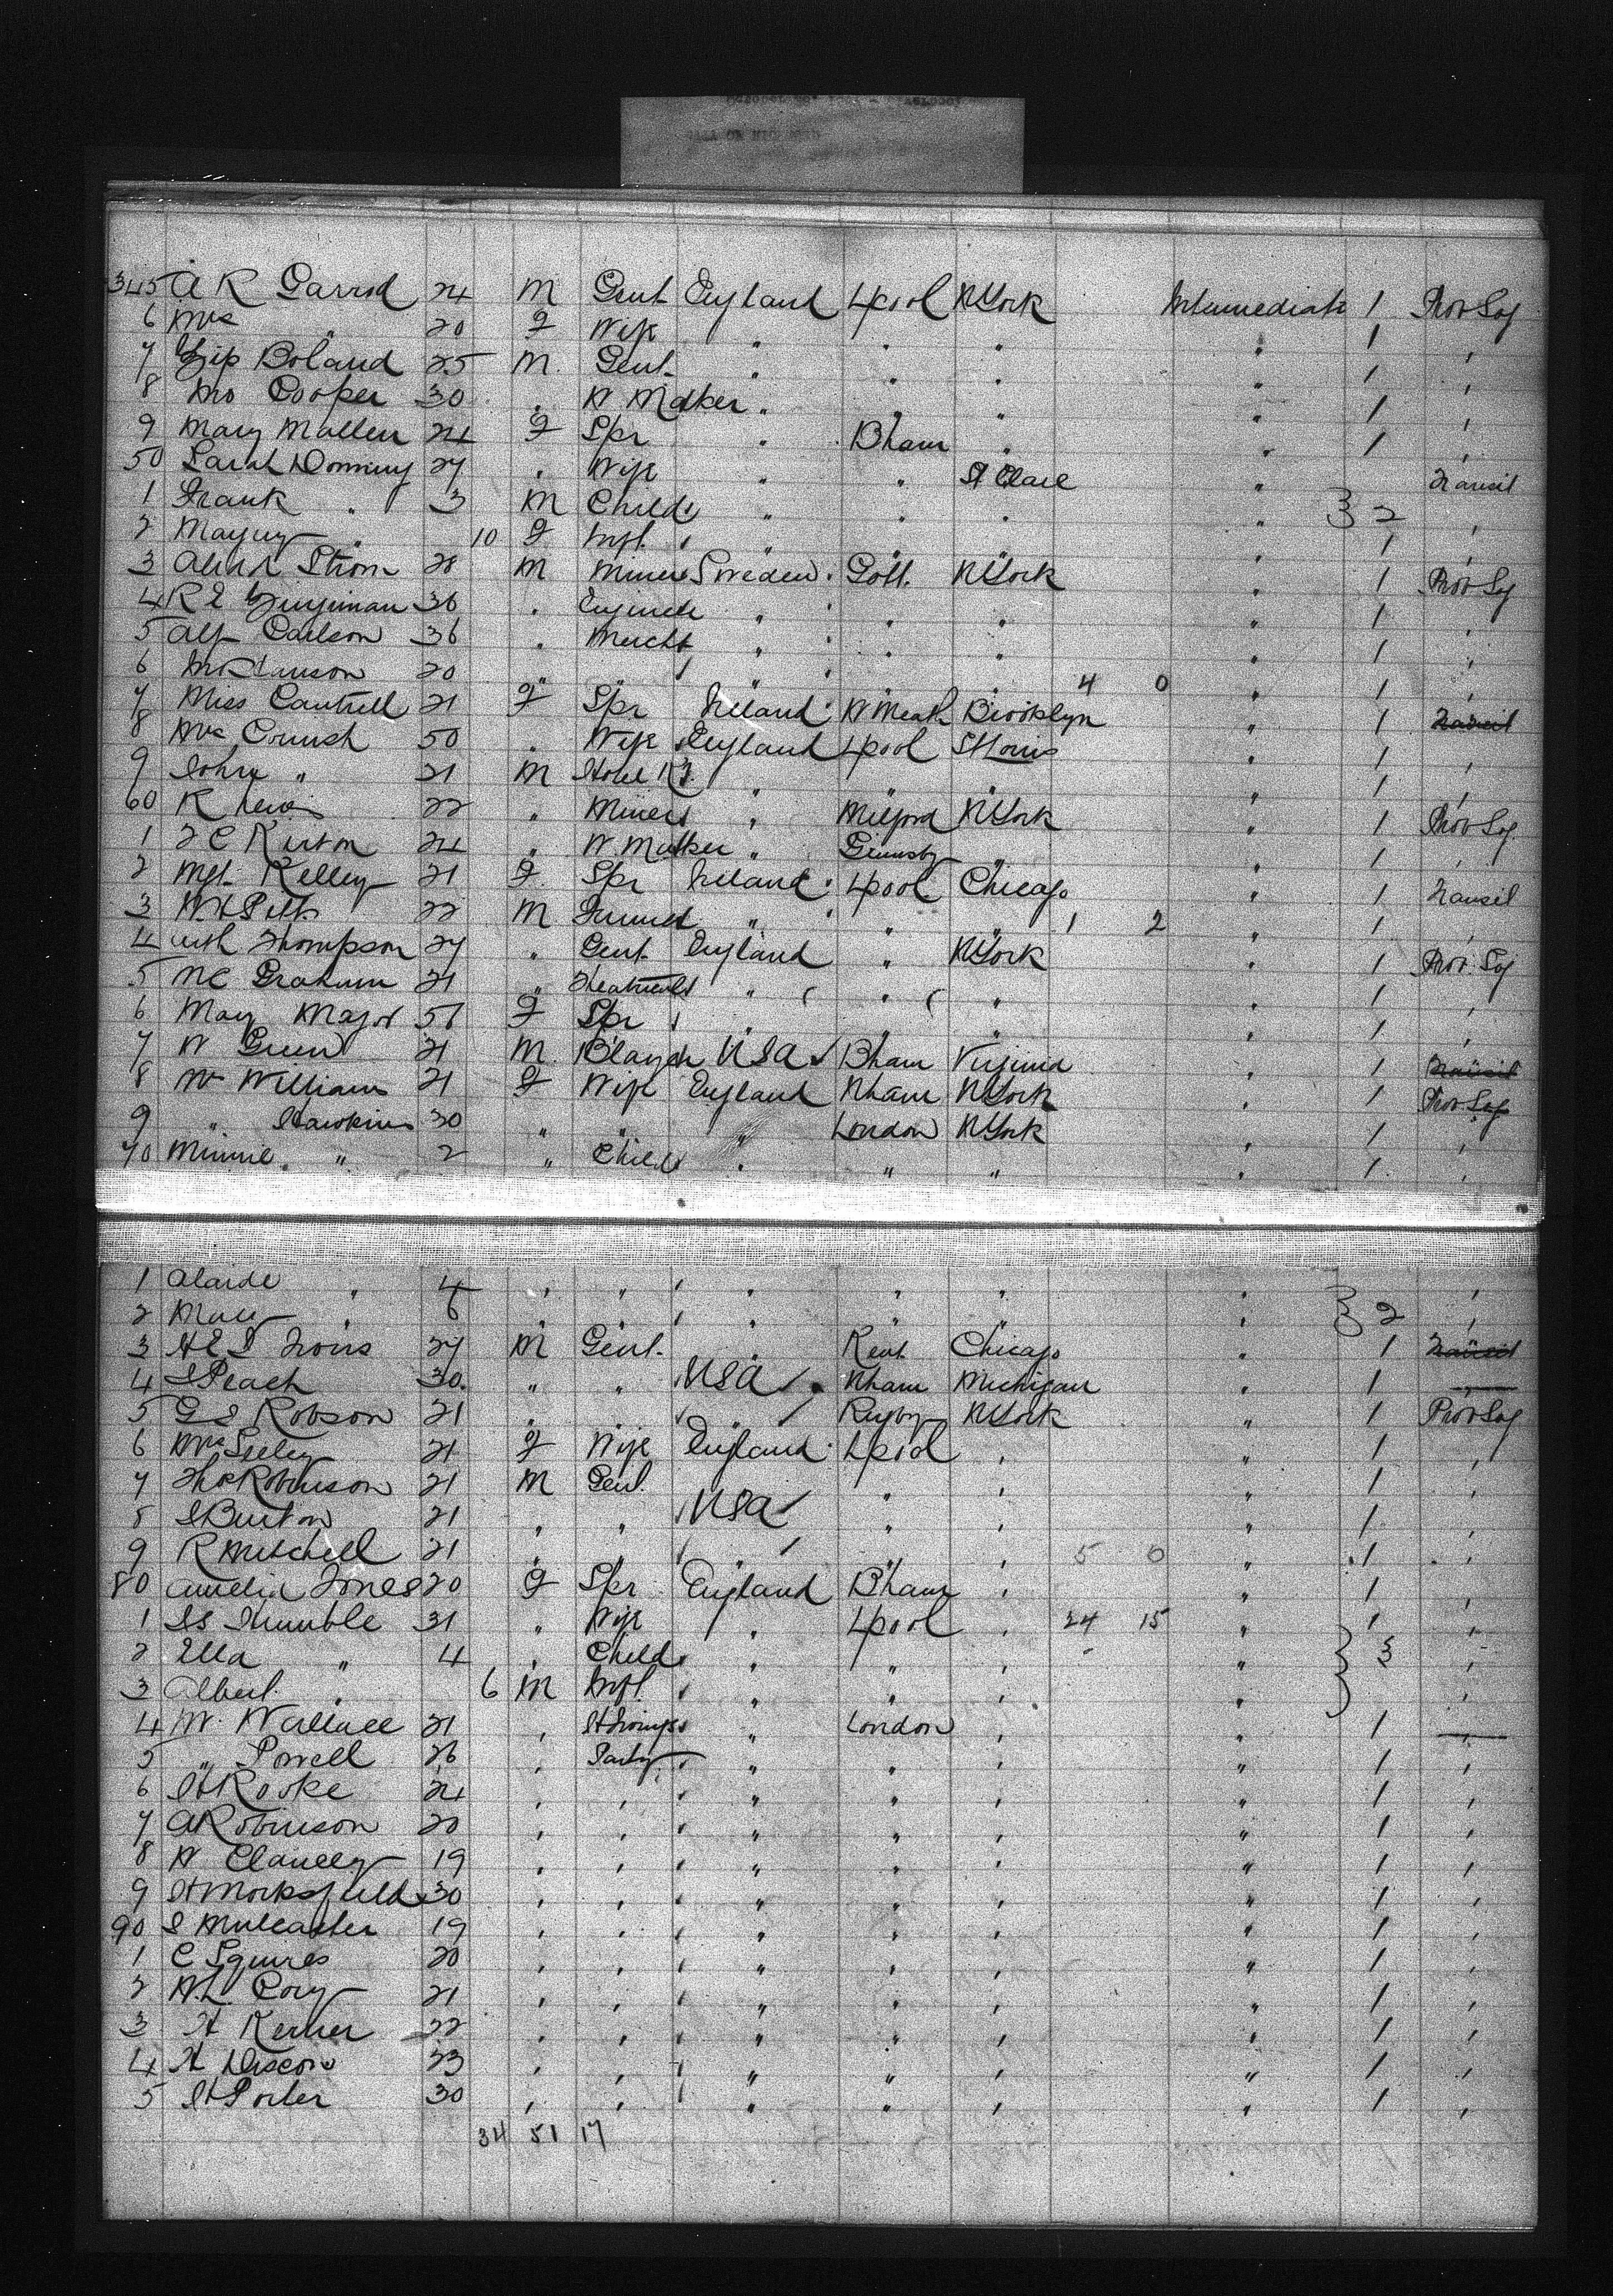 345 A R Garrod 24 M Gent England Lpool N York Intermediate 1 Prov Soj
6 Mrs " 20 F Wife " " " " 1 "
7 Boland 25 M Gent " " " " 1 "
8 Cooper 30 " W Maker " " " " 1 "
9 Mary Mullen 24 F Spr " Bham " " 1 "
50 Sarah 27 " Wife " " St Clare " Transit
1 Frank " 3 M Child " " " " } 2 "
2 " 10 F Inft " " " " 1 "
3 Strom 28 M Miner Sweden Gott. N York " 1 Prov Soj
4 R E 36 " Engineer " " " " 1 "
5 Alf Carlson 36 " Mercht " " " " 1 "
6 20 " " " " " 4 0 " 1 "
7 Miss Cantrell 21 F Spr Ireland W Meath Brooklyn " 1 Transit
8 Mrs Crunch 50 " Wife England Lpool St Louis " 1 "
9 John " 21 M Hotel " " " " 1 "
60 R Lewis 22 " Miner " Milford N York " 1 Prov Soj
1 F C Kirton 24 " W Maker " Grimsby " " 1 "
2 Mgt. Kelley 21 F Spr Ireland Lpool Chicago " 1 Transit
3 22 M " " " 1 2 " 1 "
4 Thompson 27 " Gent England " N York " 1 Prov. Soj
5 Graham 21 " " " " " 1 "
6 May Major 51 F Spr " " " " 1 "
7 W Green 21 M USA Bham Virginia " 1 Transit
8 Mrs Williams 21 F Wife England Nham N York " 1 Prov Soj
9 " Hawkins 30 " " " London N York " 1 "
70 Minnie " 2 " Child " " " " 1 "
1 " 4 " " " " " " } 2 "
2 " 6 " " " " " " "
3 27 M Gent. " Kent Chicago " 1 Transit
4 Peach 30 " " USA Nham Michigan " 1
5 G S Robson 21 " " " Rugby N York " 1 Prov Soj
6 Mrs Seeley 21 F Wife England Lpool " " 1 "
7 Robinson 21 M Gent. " " " " 1 "
8 Burton 21 " " USA " " " 1 "
9 R Mitchell 21 " " " " " 5 0 " 1 "
80 Amelia Jones 20 F Spr England Bham " " 1 "
1 31 " Wife " Lpool " 24 15 " 1 "
2 Ella " 4 " Child " " " " } 3 "
3 Albert " 6 M Inft " " " " "
4 Mr Wallace 21 " " London " " 1
5 " Powell 26 " Party " " " " 1 "
6 H Rooke 24 " " " " " " 1 "
7 A Robinson 20 " " " " " " 1 "
8 W 19 " " " " " " 1 "
9 30 " " " " " " 1 "
90 Mulcaster 19 " " " " " " 1 "
1 C Squires 20 " " " " " " 1 "
2 W.L. Cory 21 " " " " " " 1 "
3 H Kerner 22 " " " " " " 1 "
4 H 23 " " " " " " 1 "
5 H Porter 30 " " " " " " 1 "
34 51 17